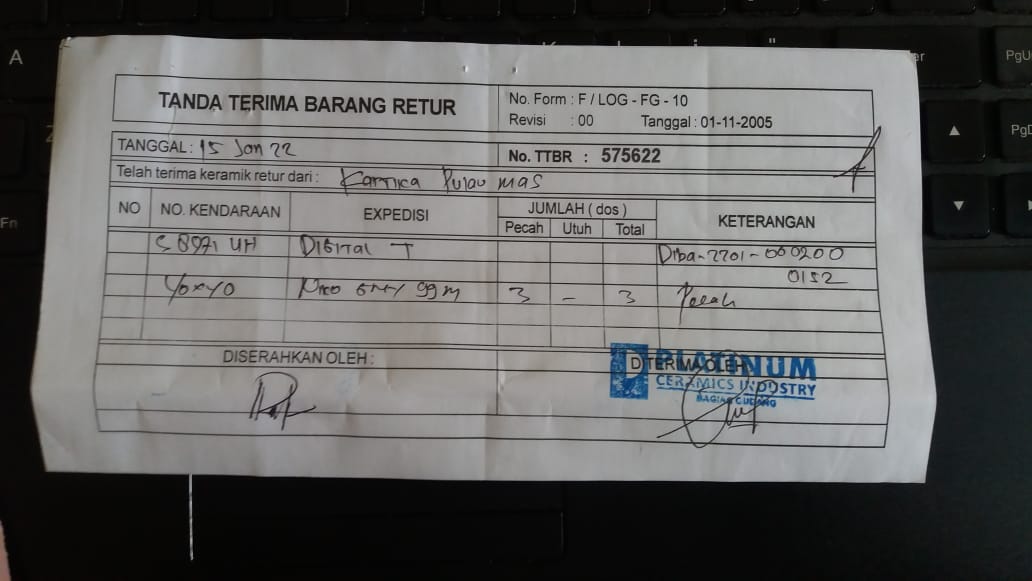 TANDA TERIMA BARANG RETUR
No. Form : F / LOG - FG - 10
Revisi : 00 Tanggal : 01-11-2005
TANGGAL : 15 Jan 22
No. TTBR : 575622
Telah terima keramik retur dari : Kartika Pulau mas
NO NO. KENDARAAN EXPEDISI JUMLAH ( dos ) KETERANGAN
Pecah Utuh Total
S 8971 UH DIGITAL T Diba-2201-000200
0152
40x40 3 - 3 Pecah
DISERAHKAN OLEH : DITERIMA OLEH
PLATINUM
CERAMICS INDUSTRY
BAGIAN GUDANG